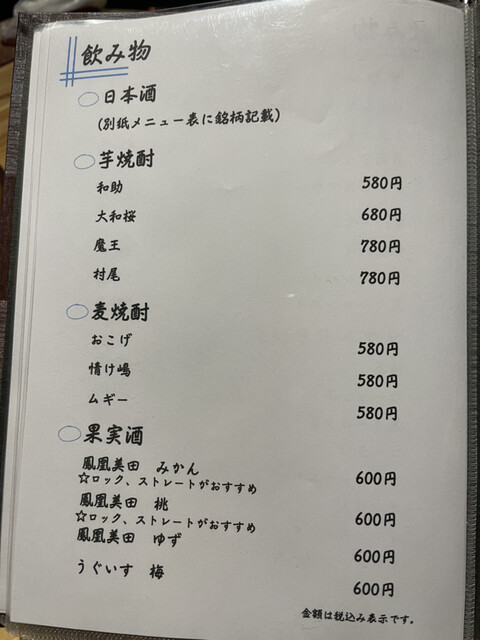 飲み物
日本酒
(別紙メニュー表に銘柄記載)
芋焼酎
和助 580円
大和桜 680円
魔王 780円
村尾 780円
麦焼酎
おこげ 580円
情け嶋 580円
ムギー 580円
果実酒
鳳凰美田 みかん 600円
☆ロック、ストレートがおすすめ
鳳凰美田 桃 600円
☆ロック、ストレートがおすすめ
鳳凰美田 ゆず 600円
うぐいす 梅 600円
金額は税込み表示です。